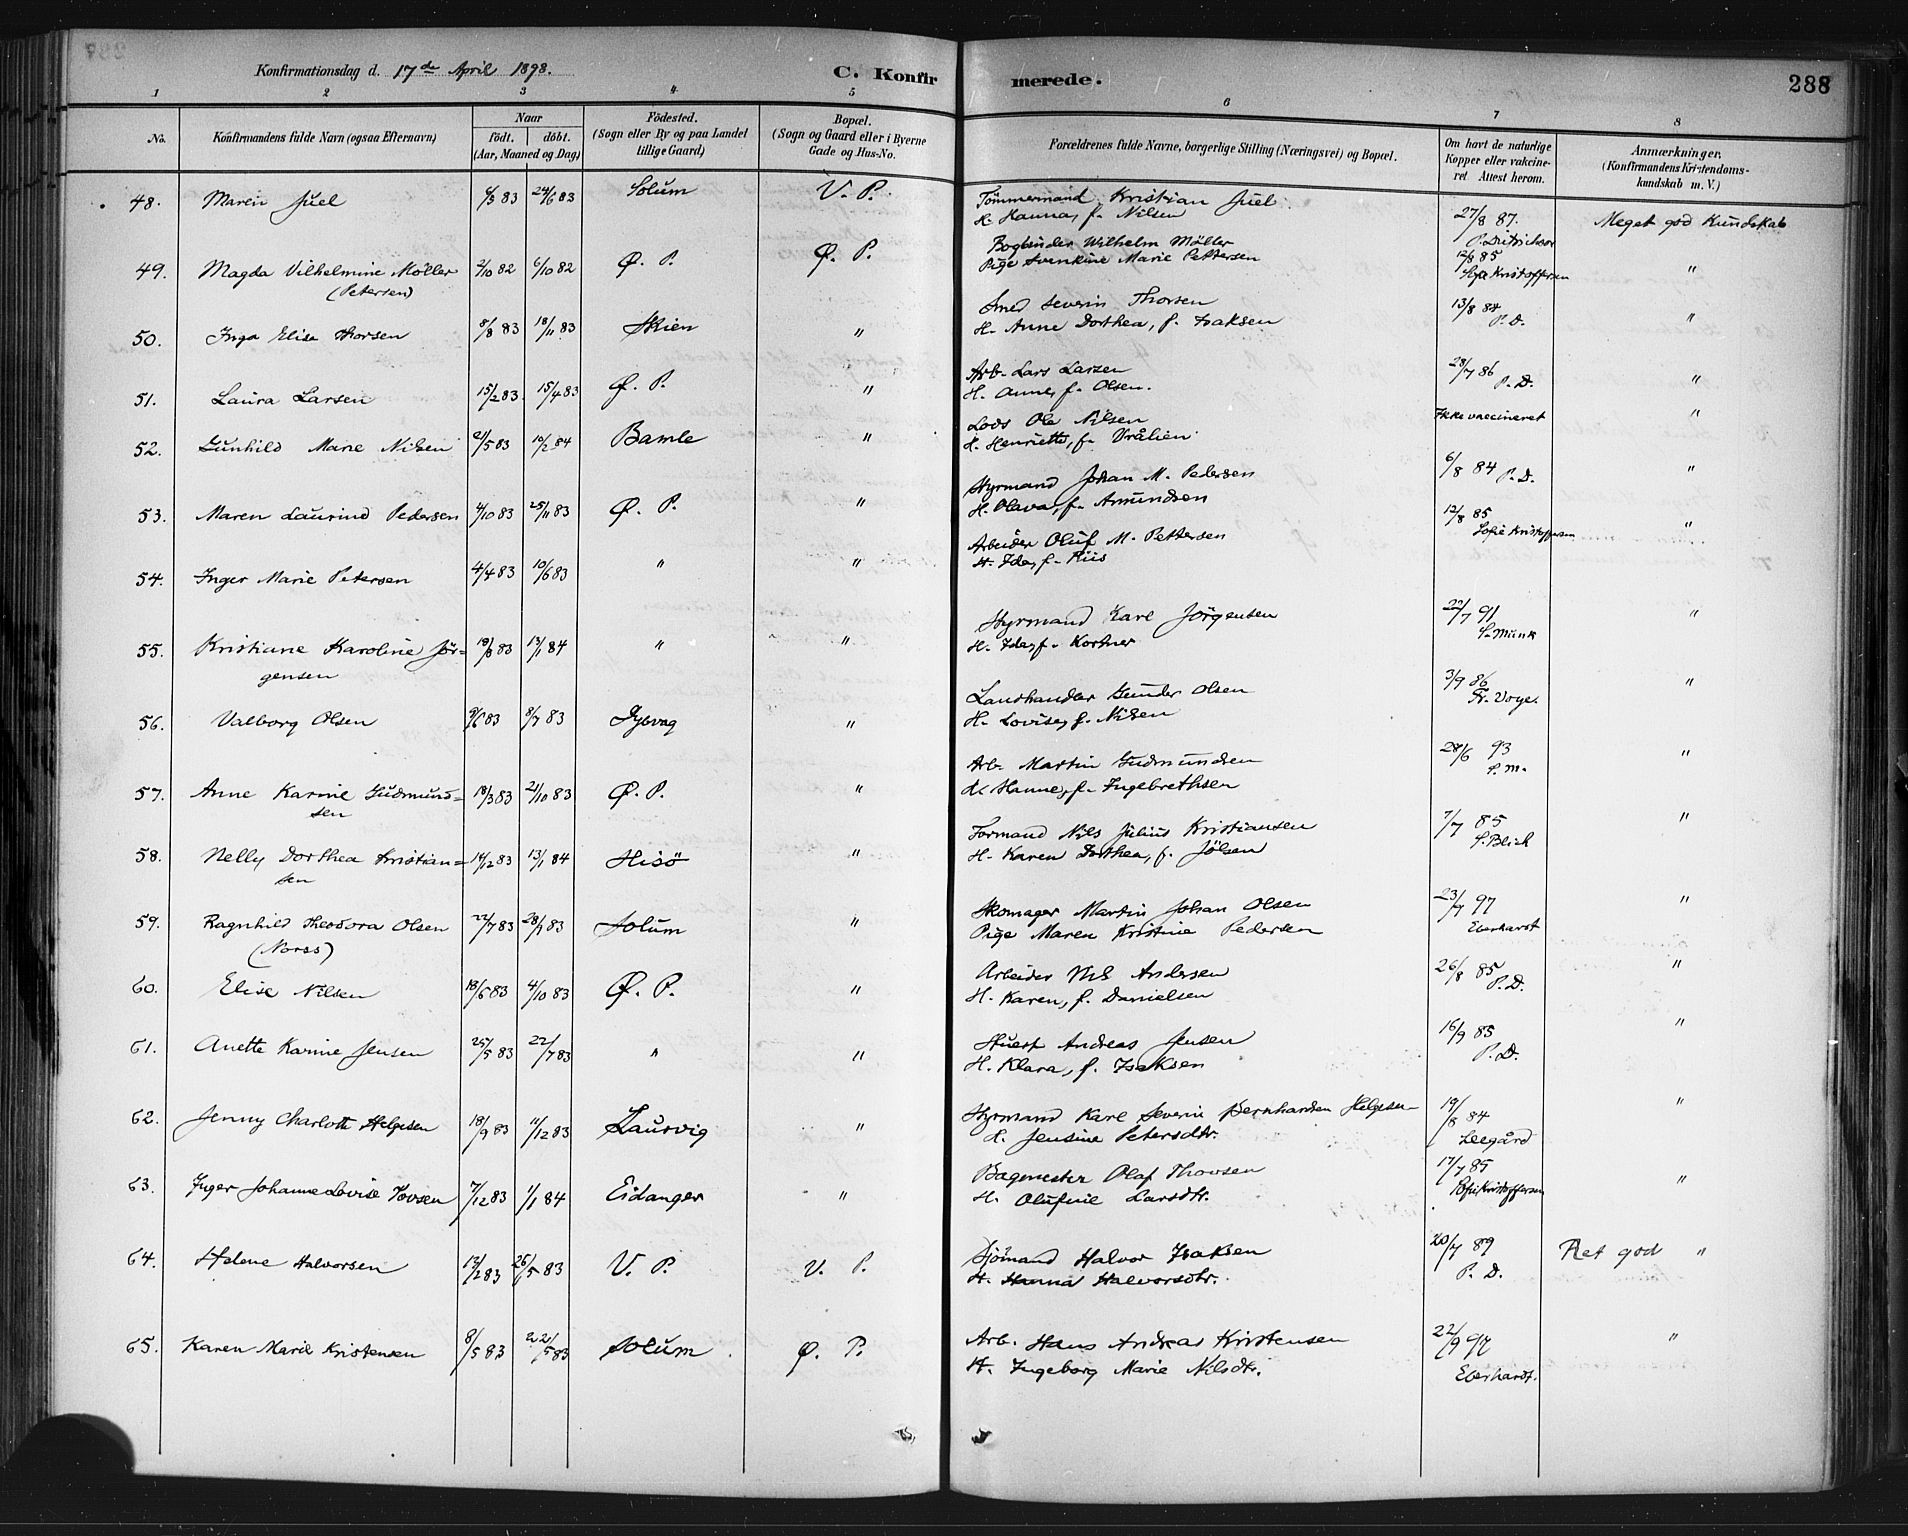 Konfirmationsdag d. 17de April 1898.
C. Konfirmerede.
288
1 2 3 4 5 6 7 8
No.
Konfirmandens fulde Navn (ogsaa Efternavn)
Naar
födt. döbt.
(Aar, Maaned og Dag)
Födested.
(Sogn eller By og paa Landet
tillige Gaard)
Bopæl.
(Sogn og Gaard eller i Byerne
Gade og Hus-No.
Forældrenes fulde Navne, borgerlige Stilling (Næringsvei) og Bopæl.
Om havt de naturlige
Kopper eller vakcine-
ret. Attest herom.
Anmærkninger.
(Konfirmandens Kristendoms-
kundskab m. V.)
48. Maren Juel 6/3 83 24/6 83 Solum V. P. Tömmermand Kristian Juel 27/8 87. Meget god Kundskab
H. Hanna, f. Nilsen P. Dietrichson
49. Magda Vilhelmine Möller 2/10 82 6/10 82 Ø. P. Ø. P. Bogbinder Wilhelm Möller 12/8 85 "
(Petersen) Pige Svenkine Marie Pettersen Sofie Kristoffersen
50. Inga Elise Thorsen 8/8 83 18/11 83 Skien " Smed Severin Thorsen 13/8 84 "
H. Anne Dorthea, f. Isaksen P. D.
51. Laura Larsen 15/2 83 15/4 83 Ø. P. " Arb. Lars Larsen 28/7 86 "
H. Anne, f. Olsen. P. D.
52. Gunhild Marie Nilsen 21/5 83 10/2 84 Bamle " Lods Ole Nilsen Ikke vaccineret "
H. Henriette, f. Vrålien
53. Maren Laurind Pedersen 4/10 83 25/11 83 Ø. P. " Styrmand Johan M. Pedersen 6/8 84 "
H. Olava, f. Amundsen P. D.
54. Inger Marie Petersen 4/4 83 10/6 83 " " Arbeider Oluf M. Pettersen 12/8 85 "
H. Ida, f. Riis Sofie Kristoffersen
55. Kristiane Karoline Jör- 19/8 83 13/1 84 " " Styrmand Karl Jörgensen 22/7 91 "
gensen H. Ida, f. Kortner S. Munk
56. Valborg Olsen 9/6 83 8/7 83 Dybvag " Landhandler Gunder Olsen 3/9 86 "
H. Lovise, f. Nilsen Fr. Voye.
57. Anne Karine Gudmund- 18/3 83 21/10 83 Ø. P. " Arb. Martin Gudmundsen 28/6 93 "
sen H. Hanne, f. Ingebrethsen S. M.
58. Nelly Dorthea Kristian- 14/12 83 13/1 84 Hisö " Formand Nils Julius Kristiansen 7/7 85 "
sen H. Karen Dorthea, f. Jölsen S. Blich
59. Ragnhild Theodora Olsen 22/7 83 28/9 83 Solum " Skomager Martin Johan Olsen 23/7 97 "
(Norss) Pige Maren Kristine Pedersen Eberhardt
60. Elise Nilsen 18/6 83 4/10 83 Ø. P. " Arbeider Nils Andersen 26/8 85 "
H. Karen, f. Danielsen P. D.
61. Anette Karine Jensen 25/5 83 22/7 83 " " Stuert Andreas Jensen 16/9 85 "
H. Klara, f. Isaksen P. D.
62. Jenny Charlotte Helgesen 18/9 83 11/12 83 Laurvig " Styrmand Karl Severin Bernhardsen Helgesen 19/8 84 "
H. Jensine Petersdtr. Leegård
63. Inger Johanne Lovise Tovsen 7/12 83 1/1 84 Eidanger " Bagmester Olaf Thovsen 17/7 85 "
H. Olufine Larsdtr. Sofie Kristoffersen
64. Helene Halvorsen 13/2 83 26/5 83 V. P. V. P. Sjömand Halvor Isaksen 20/7 89 Ret god "
H. Hanna Halvorsdtr. P. D.
65. Karen Marie Kristensen 8/5 83 22/5 83 Solum Ø. P. Arb. Hans Andreas Kristensen 22/9 97 "
H. Ingeborg Marie Nilsdtr. Eberhardt.